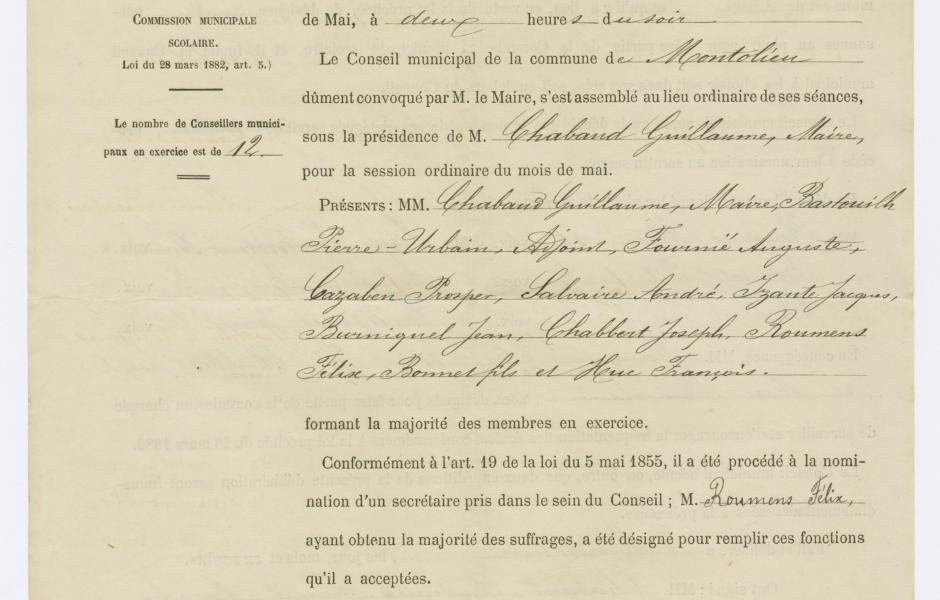 COMMISSION MUNICIPALE
SCOLAIRE.
Loi du 28 mars 1882, art. 5.)
Le nombre de Conseillers munici-
paux en exercice est de 12
de Mai, à deux heures du soir
Le Conseil municipal de la commune de Montolieu
dûment convoqué par M. le Maire, s'est assemblé au lieu ordinaire de ses séances,
sous la présidence de M. Chabaud Guillaume, Maire,
pour la session ordinaire du mois de mai.
PRÉSENTS : MM. Chabaud Guillaume, Maire, Bastouilh
Pierre-Urbain, Adjoint, Fournié Auguste,
Cazaben Prosper, Salvaire André, Izante Jacques,
Burniquel Jean, Chabbert Joseph, Roumens
Félix, Bonnet fils et Huc François.
formant la majorité des membres en exercice.
Conformément à l'art. 19 de la loi du 5 mai 1855, il a été procédé à la nomi-
nation d'un secrétaire pris dans le sein du Conseil ; M. Roumens Félix,
ayant obtenu la majorité des suffrages, a été désigné pour remplir ces fonctions
qu'il a acceptées.